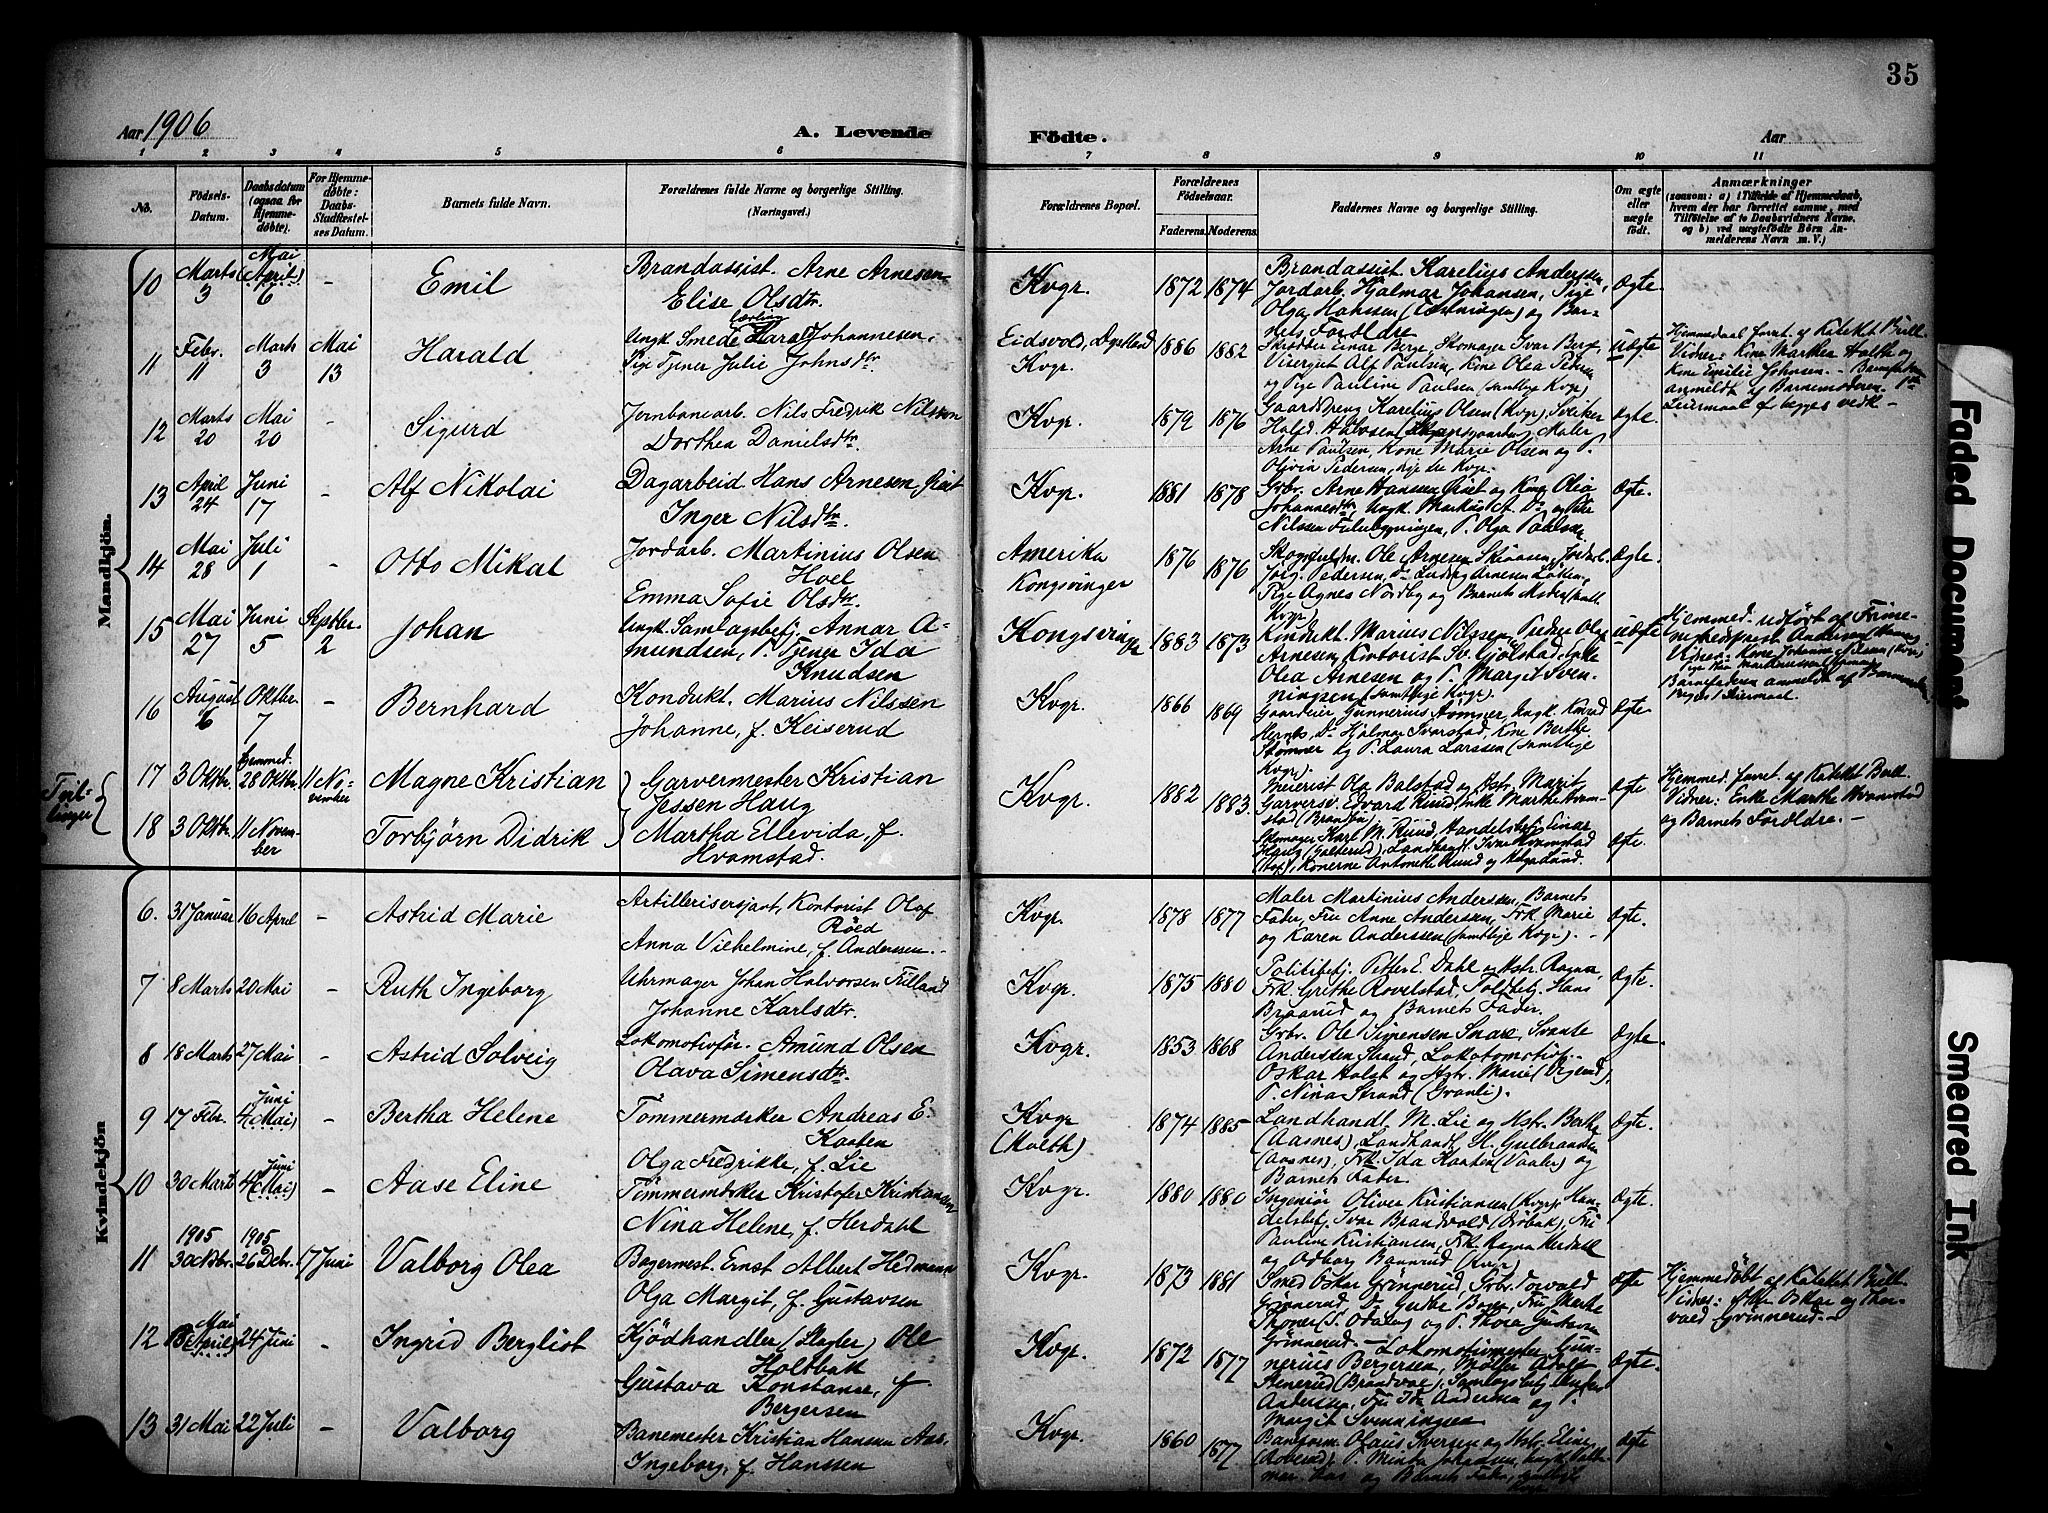 35
Aar 1906
A. Levende
Födte.
Aar
1 2 3 4 5 6 7 8 9 10 11
No.
Födsels-Datum.
Daabsdatum (ogsaa for Hjemmedøbte).
For Hjemmedøbte: Daabs-Stadfæstelses Datum.
Barnets fulde Navn.
Forældrenes fulde Navne og borgerlige Stilling.
(Næringsvei.)
Forældrenes Bopæl.
Forældrenes Fødselsaar.
Faderens. Moderens.
Faddernes Navne og borgerlige Stilling.
Om ægte eller uægte født.
Anmærkninger
(saasom: a) i Tilfælde af Hjemmedaab, hvem der har forrettet samme, med Tilføielse af to Daabsvidners Navne, og b) ved uægtefødte Börn Anmelderens Navn m. V.)
Mandkjön.
10 Marts 3 Mai (April) 6 - Emil
Brandassist. Arne Arnesen
Elise Olsdtr.
Kvgr. 1872 1874
Brandassist Karelius Anderssen,
Jordarb. Hjalmar Johansen, Pige
Olga Hanssen og Bar-
nets Forældre
Ægte.
11 Febr. 11 Marts 3 Mai 13 Harald
Ungk. Smedelærling Harald Johannesen,
Pige Tjener Julie Johnsdtr.
Eidsvold,
Kvgr. 1886 1882
Skrædder Einar Berg, Skomager Ivar Berg,
Visergut Alf Paulsen, Kone Olea Petersen
og Pige Pauline Paulsen (samtlige Kvgr)
Uægte
Hjemmedaab forret. af Kateket Bull.
Vidner: Kone Marthea Holth og
Kone Emilie Johnsen. - Barnefaderen
anmeldt af Barnemoderen. 1ste
Leiermaal for begges vedk -
12 Marts 20 Mai 20 - Sigurd
Jernbanearb. Nils Fredrik Nilsson
Dorthea Danielsdtr.
Kvgr. 1879 1876
Gaardsdreng Karelius Olsen (Kvgr)
Halvorsen Maler
Arne Paulsen, Kone Marie Olsen og P.
Olivia Pedersen,
Ægte.
13 April 24 Juni 17 - Alf Nikolai
Dagarbeid Hans Arnesen
Inger Nilsdtr.
Kvgr. 1881 1878
Grbr. Arne Hanssen og Kone Olea
Johannesdtr, Ungk. Markus
Nilssen P. Olga
Ægte.
14 Mai 28 Juli 1 - Otto Mikal
Jordarb. Martinius Olsen
Hoel
Emma Sofie Olsdtr.
Amerika
Kongsvinger
1876 1876
Ole Arnesen
Jörg. Pedersen, Ludvig Arnesen
Pige Agnes Nordby og Barnets Moder
Kvgr)
Ægte.
15 Mai 27 Juni 5 Septbr. 2 Johan
Ungk. Samlagsbetj. Annar A-
mundsen, P. Tjener Ida
Knudsen
Kongsvinger
1883 1873
Kondukt. Marius Nilssen, Peder Olaf
Arnesen, Kontorist Gjölstad, Enke
Olea Arnesen og P. Margit Sven-
ningsen (samtlige Kvgr).
Uægte
Hjemmed. udført af Frime-
nighedsprest Andersen
Vidner: Kone Johanne Nilsen (Kvgr)
Barnefaderen anmeldt af
16 August 6 Oktbr. 7 - Bernhard
Kondukt. Marius Nilssen
Johanne, f. Keiserud
Kvgr. 1866 1869
Gaardeier Gunnerius Ungk. Konrad
Hernes, Do Hjalmar Svarstad, Kone Berthe
og P. Laura Larssen (samtlige
Kvgr).
Ægte
Tvil-
linger
17 3 Oktbr. Hjemmed. 28 Oktbr. 11 No-
vember Magne Kristian
Garvermester Kristian
Jessen Haug
Kvgr. 1882 1883
Meierist Ole Balstad og Hstr. Marit,
Garversv. Edvard Ruud, Enke Marthe Hvam-
stad (Brandv.)
ægte
Hjemmed. forret. af Kateket Bull.
Vidner: Enke Marthe Hvamstad
og Barnets Forældre. -
18 3 Oktbr. 11 Novem-
ber Torbjörn Didrik
Martha Ellevida, f.
Hvamstad.
Skomager Karl M. Ruud, Handelsbetj. Einar
Haug Landhandl. Ivar Hvamstad
Konerne Antonette Ruud og Helga Lund.
ægte.
Kvindekjön
6. 31 Januar 16 April - Astrid Marie
Artillerisersjant, Kontorist Olaf
Röed
Anna Vilhelmine, f. Anderssen. -
Kvgr. 1878 1877
Maler Martinius Anderssen, Barnets
Fader, Fru Anne Anderssen, Frk. Marie
og Karen Anderssen (samtlige Kvgr). -
Ægte.
7 8 Marts 20 Mai - Ruth Ingeborg
Uhrmager Johan Halvorsen
Johanne Karlsdtr.
Kvgr. 1875 1880
Politibetj. Petter E. Dahl og Hstr. Ragna,
Frk. Grethe Rovelstad, Toldbetj. Hans
Braarud og Barnets Fader.
Ægte.
8 18 Marts 27 Mai - Astrid Solveig
Lokomotivför. Amund Olsen
Olava Simensdtr.
Kvgr. 1853 1868
Grbr. Ole Simensen Snare, Svante
Anderssen Strand, Lokotomotivf.
Oskar Holst og Hstr. Marie
P. Nina Strand (Granli).
Ægte.
9 17 Febr. Juni 4 (Mai) - Bertha Helene
Tömmermærker Andreas E.
Kaaten
Olga Fredrikke, f. Lie
Kvgr
(Holth) 1874 1885
Landhandl. M. Lie og Hstr. Berthe
(Aasnes), Landhandl. H. Gulbrandsen
(Aasnes), Frk. Ida Kaaten (Vaaler) og
Barnets Fader.
Ægte.
10 30 Marts Juni 4 (Mai) - Aase Eline
Tömmermærker Kristofer Kristiansen
Nina Helene, f. Herdahl
Kvgr. 1880 1880
Ingeniör Oliver Kristiansen (Kvgr), Han-
delsbetj. Ivar Brandvold (Dröbak), Fru
Pauline Kristiansen, Frk. Ragna Herdahl
og Odborg Bannrud (Kvgr)
Ægte.
11 1905 30 Novbr. 1905 26 Debr. 17 Juni Valborg Olea
Bagermest. Ernst Albert Hedmann
Olga Margit, f. Gustavsen
Kvgr. 1873 1881
Smed Oskar Grinnerud, Grbr. Torvald
Grinnerud, Fru Marthe
Sköner (S. Odalen) og P. Thora Gustavsen
Grönnerud. -
ægte
Hjemmedöbt af Kateket Bull.
Vidner: Oskar og Thor-
vald Grinnerud. -
12 Mai 13 (April) 24 Juni - Ingrid Bergliot
Kjödhandler (Slagter) Ole
Holtbakk
Gustava Konstanse, f.
Bergersen
Kvgr. 1872 1877
Lokomotivmester Gun-
nerius Bergersen, Möller Adolf
Stenerud (Brandval), Samlagsbetj.
Anderssen, Fru Ida Anderssen og P.
Margit Svenningsen
Ægte.
13 31 Mai 22 Juli - Valborg
Banemester Kristian Hansen Aas.
Ingeborg, f. Hanssen
Kvgr. 1860 1877
Banform. Olaus Iversen og Hstr. Eline
P. Minda Johansen, Ungk. Hal-
og Barnets Fader,
Kvgr.
ægte
Faded Document
Smeared Ink